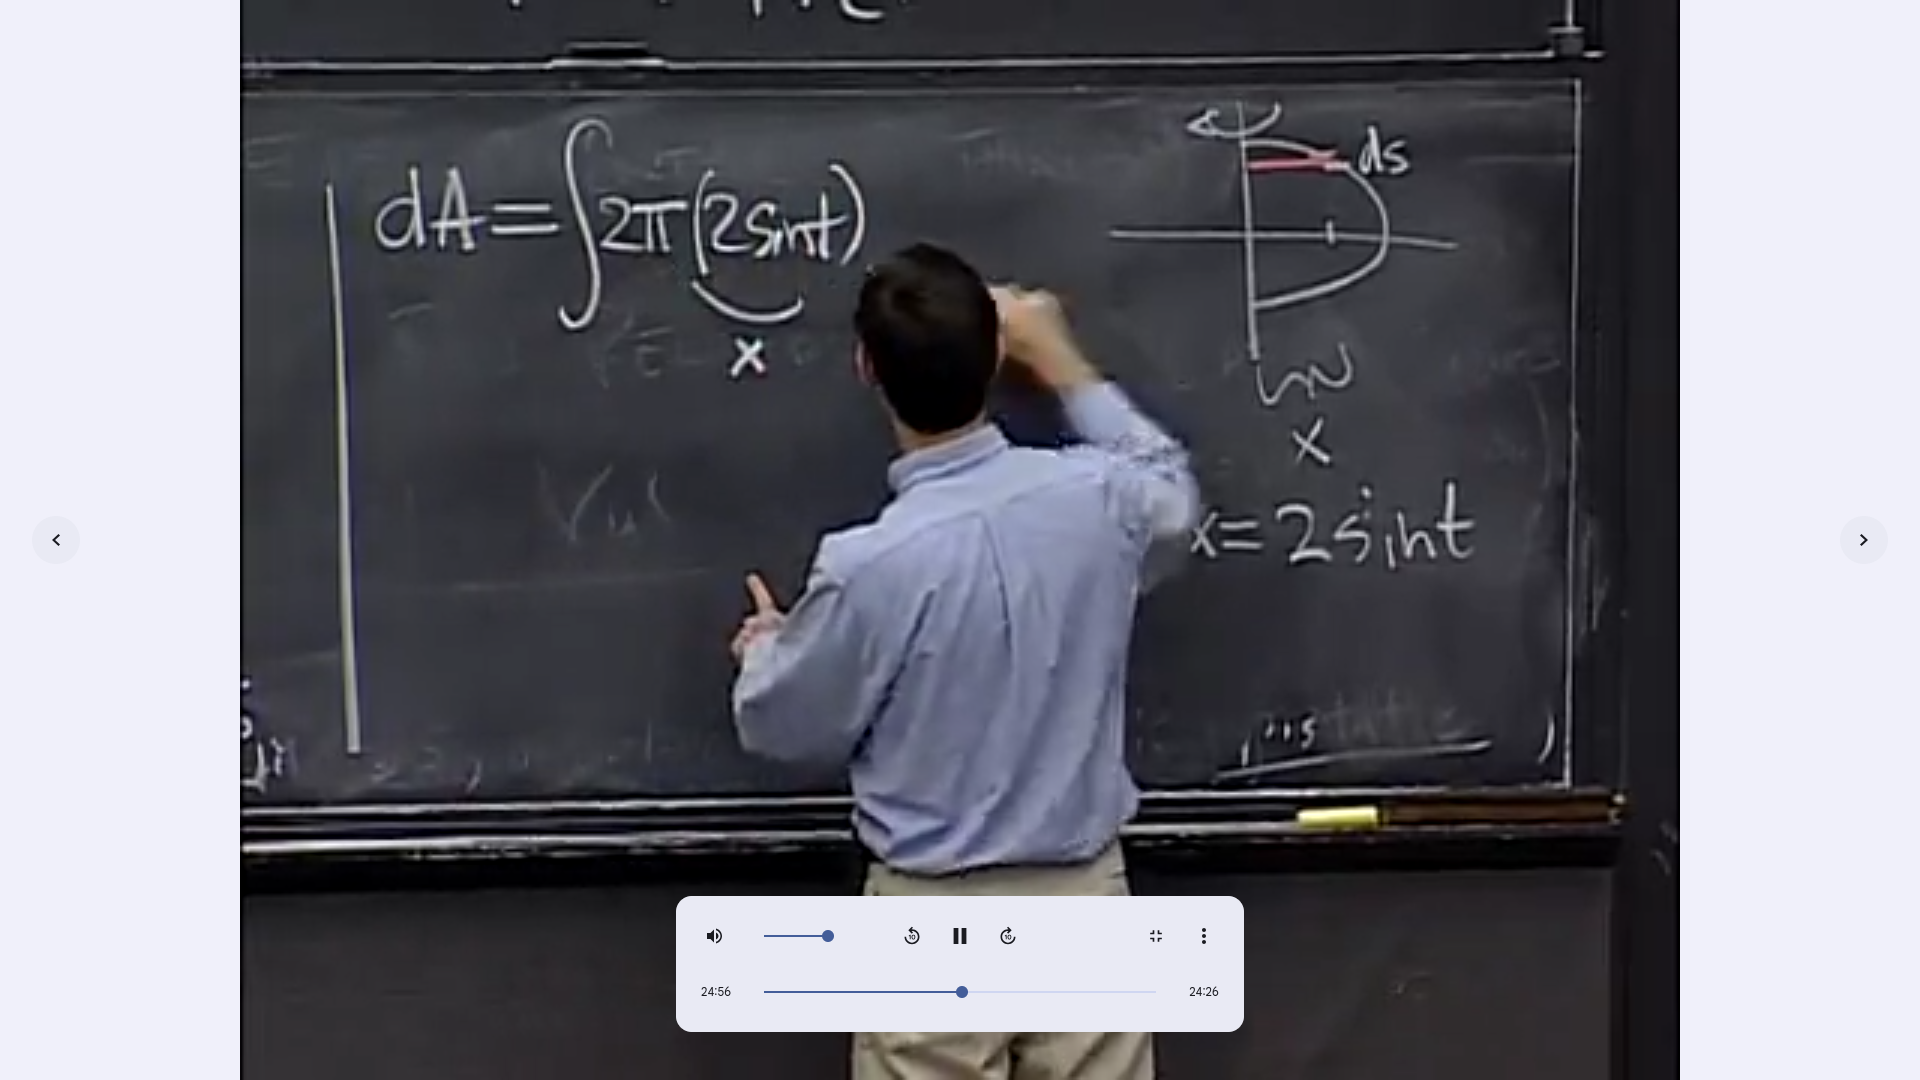 dA = ∫ 2π (2 sin t)
x
ds
x
x = 2 sin t
24:56
24:26